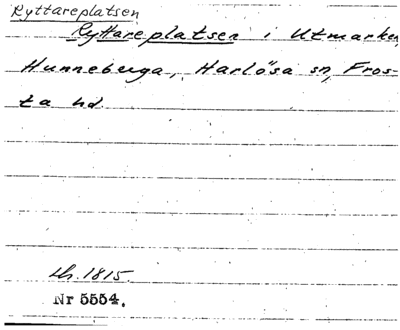 Ryttareplatsen
Ryttareplatsen i Utmarken,
Hunneberga, Harlösa sn, Fros-
ta hd.
Lh. 1815.
Nr 5554.